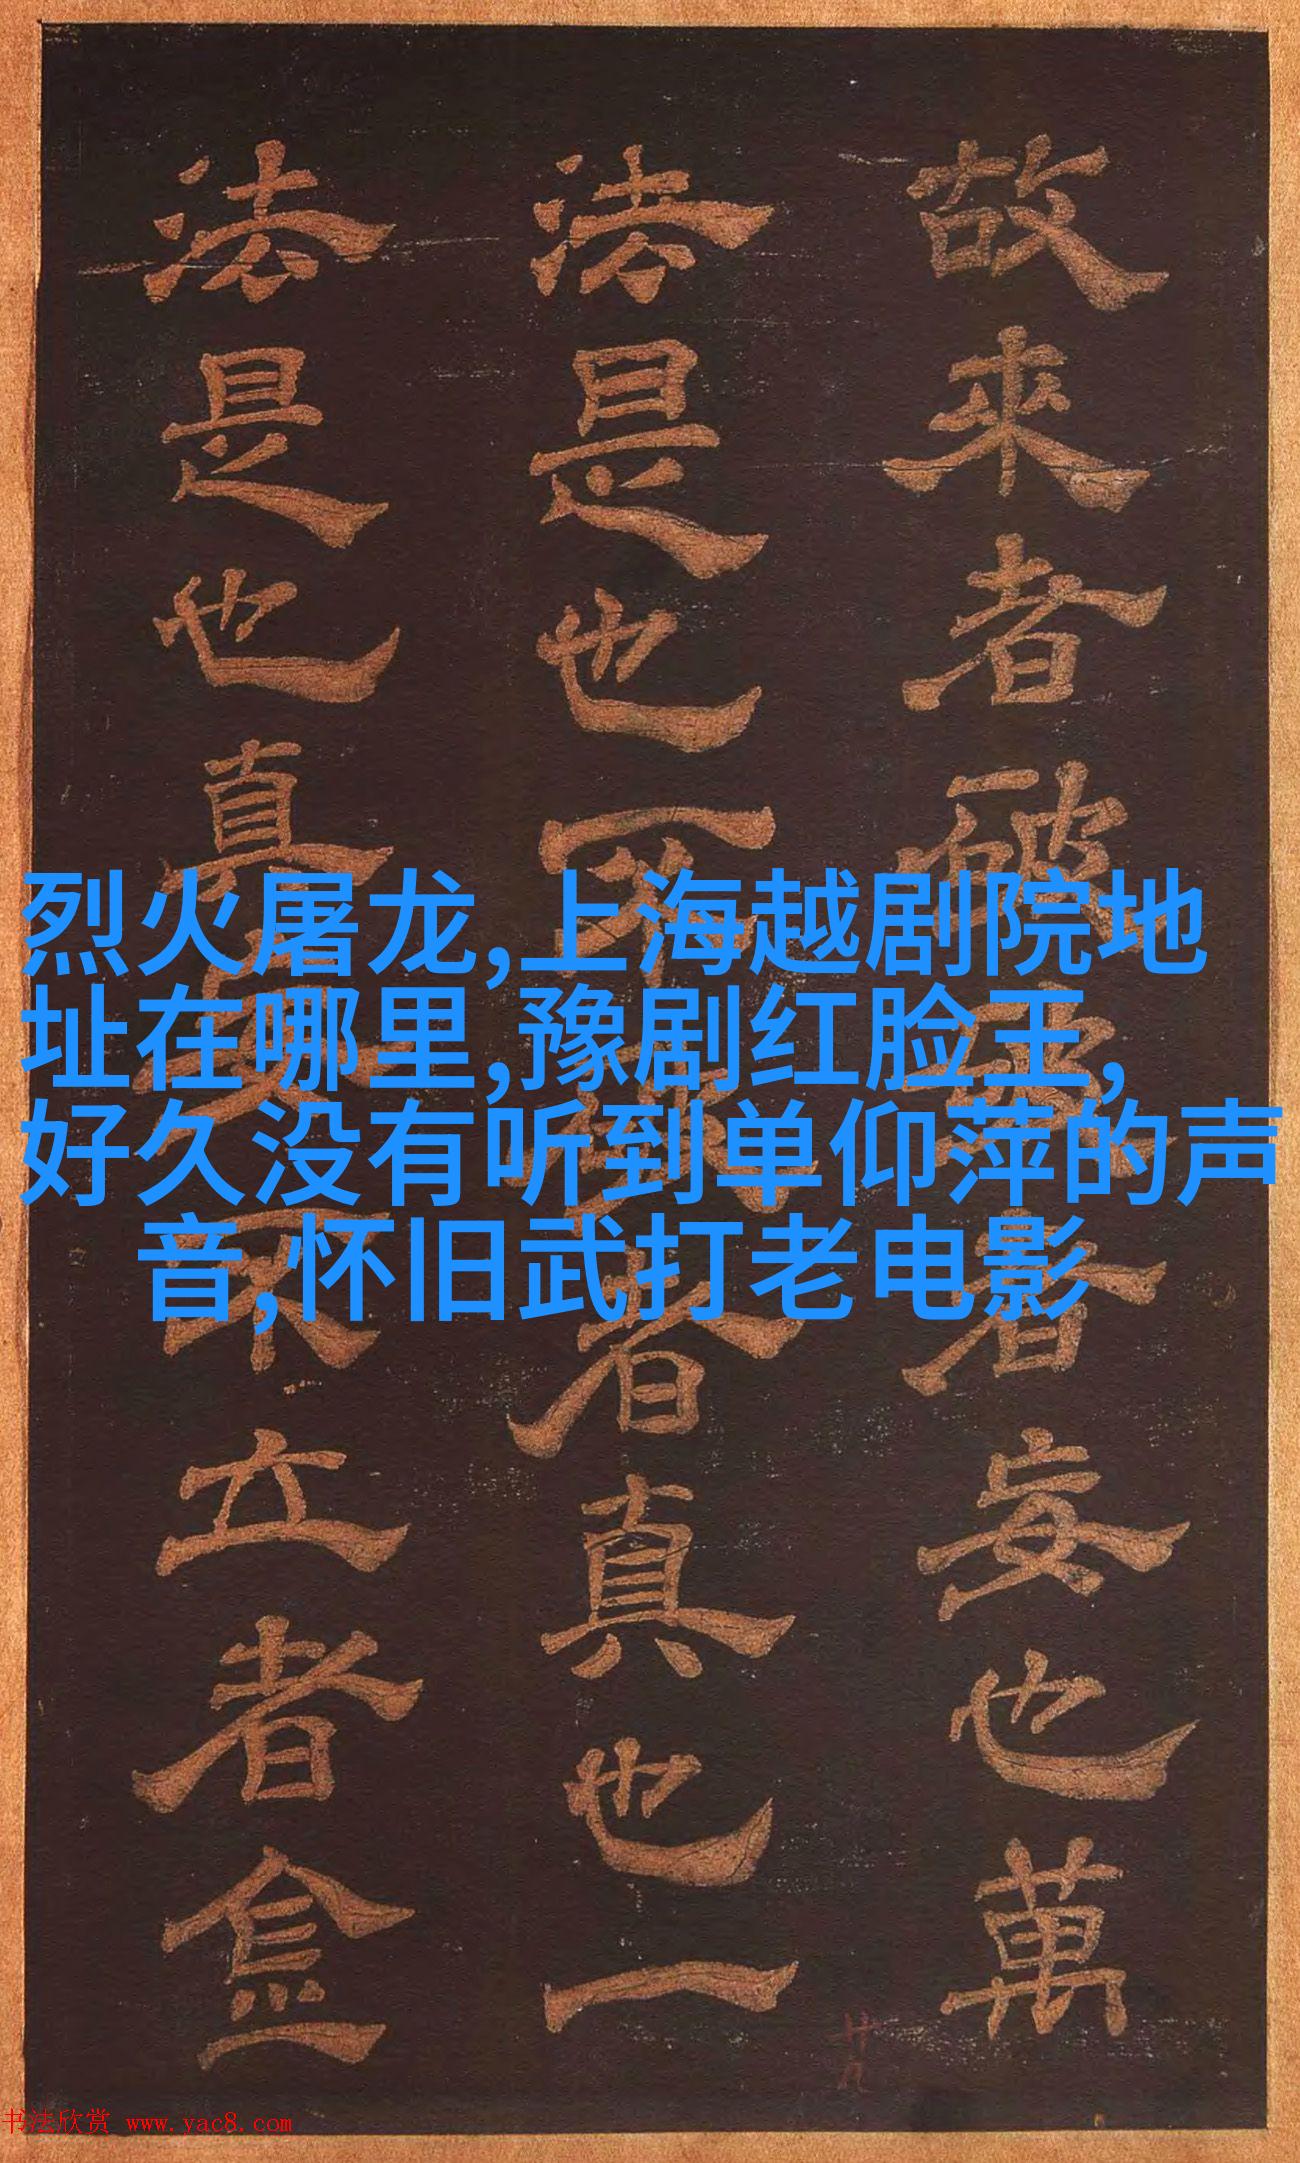 烈火屠龙,上海越剧院地
址在哪里,豫剧红脸王,
好久没有听到单仰萍的声
音,怀旧武打老电影
故來者者妄也萬
法是也者真也一
法是也真立者
廿九
书法欣赏 www.yac8.com